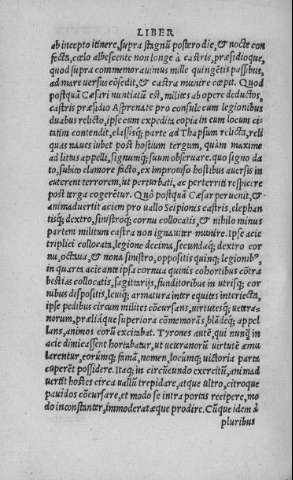 LIBER
ab incepto itinere, supra stagnũ postero die, & nocte con
fecta, cœlo albescente non longe à castris, præsidioque,
quod supra commemorauimus mille quingẽtis passibus,
ad mare uersus cõsedit, & castra munire cœpit. Quod
postquã Cæsari nuntiatũ est, milites ab opere deductos,
castris præsidio Asprenate pro consule cum legionibus
duabus relicto, ipse cum expedita copia in eum locum ci
tatim contendit, classisq; parte ad Thapsum relicta, reli
quas naues iubet post hostium tergum, quàm maxime
ad littus appelli, signumq; suum obseruare. quo signo da
to, subito clamore facto, ex improuiso hostibus auersis in
cuterent terrorem, ut perturbati, ac perterriti respicere
post terga cogerẽtur. Quò postquã Cæsar peruenit, &
animaduertit aciem pro uallo Scipionis castris, elephan
tisq; dextro, sinistroq; cornu collocatis, & nihilo minus
partem militum castra non ignauiter munire. Ipse acie
triplici collocata, legione decima, secundaq; dextro cor
nu, octaua, & nona sinistro, oppositis quinq; legionib⁹,
in quarta acie ante ipsa cornua quinis cohortibus cõtra
bestias collocatis, sagittarijs, funditoribus in utrisq; cor
nibus dispositis, leuiq; armatura inter equites interiecta,
ipse pedibus circum milites cõcursans, uirtutesq; uetera-
norum, præliaque superiora cõmemorãs, blãdeq; appel
lans, animos eorũ excitabat. Tyrones autẽ, qui nunq̃ in
acie dimicassent hortabatur, ut ueteranorũ uirtutẽ æmu
larentur, eorũmq; famã, nomen, locũmq; uictoria parta
cuperẽt possidere. Itaq; in circũeundo exercitũ, animad
uertit hostes circa uallũ trepidare, atque ultro, citroque
pauidos cõcursare, et modo se intra portas recipere, mo
do inconstanter, immoderatæque prodire. Cũque idem à
pluribus